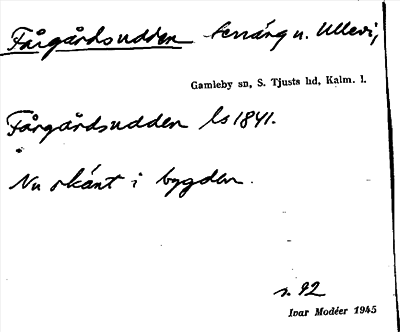 Fårgårdsudden terräng u. Ullevi,
Gamleby sn, S. Tjusts hd, Kalm. l.
Fårgårdsudden ls 1841.
Nu okänt i bygden.
s. 92
Ivar Modéer 1945